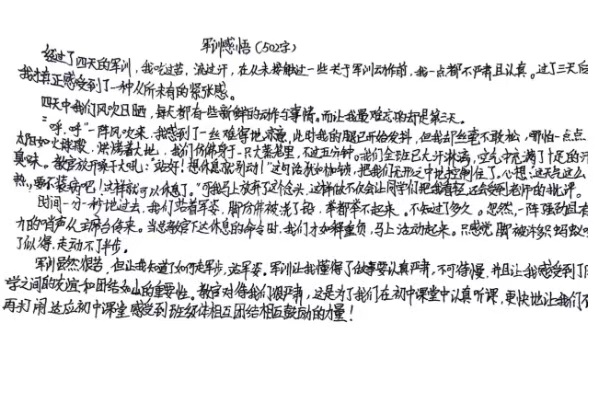 军训感悟(502字)
经过了四天的军训,我吃过苦,流过汗,在从未接触过一些关于军训动作前,我一点都不严肃且认真。过了三天后
我才真正感受到了一种从所未有的紧张感。
四天中我们风吹日晒,每天都有一些新鲜的动作与事情。而让我最难忘的却是第三天。
“呼,呼”一阵风吹来,我感到了一丝难得地凉意,此时我的腿已开始发抖,但我却丝毫不敢松,哪怕一点点
太阳如火球般,烘烤着大地,我们仿佛身于一只大蒸笼里,不过五分钟。我们全班已大汗淋漓,空气中充满了十足的汗
臭味。教官放开嗓子大吼:“站好!想休息就别动!”这句话犹如枷锁,把我们无形之中地控制住了。心想:这天这么
热,要不装病吧!这样就可以休息了。”可我马上放弃了这个念头,这样做不仅会让同学们把我看轻,还会受到老师的批评。
时间一分一秒地过去,我们站着军姿,脚仿佛被灌了铅,举都举不起来。不知过了多久。忽然,一阵强劲且有
力的哨声从主席台传来。当总教官下达休息的命令时,我们才如释重负,马上活动起来。只感觉脚被许多蚂蚁咬
了似得,走动不了半步。
军训虽然艰苦,但让我知道了如何走军步,站军姿。军训让我懂得了做事要认真严肃,不可怠慢,并且让我感受到了同
学之间的友谊和团结如山的重要性。教官对待我们很严肃,这是为了我们在初中课堂中认真听课,更快地让我们不
再打闹适应初中课堂感受到班级体相互团结相互鼓励的力量!